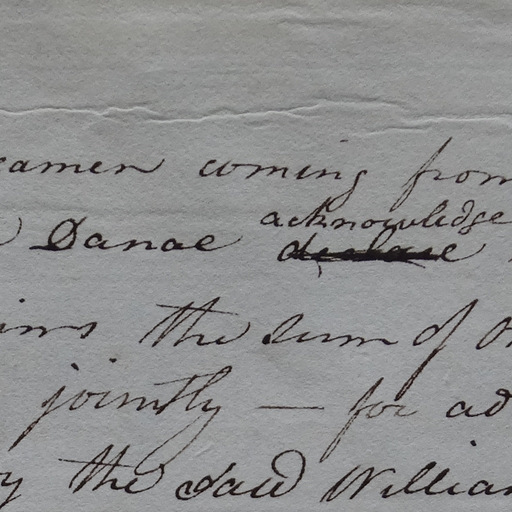 eamen coming from
Danae acknowledge declare
the sum of
jointly — for ad
by the said William